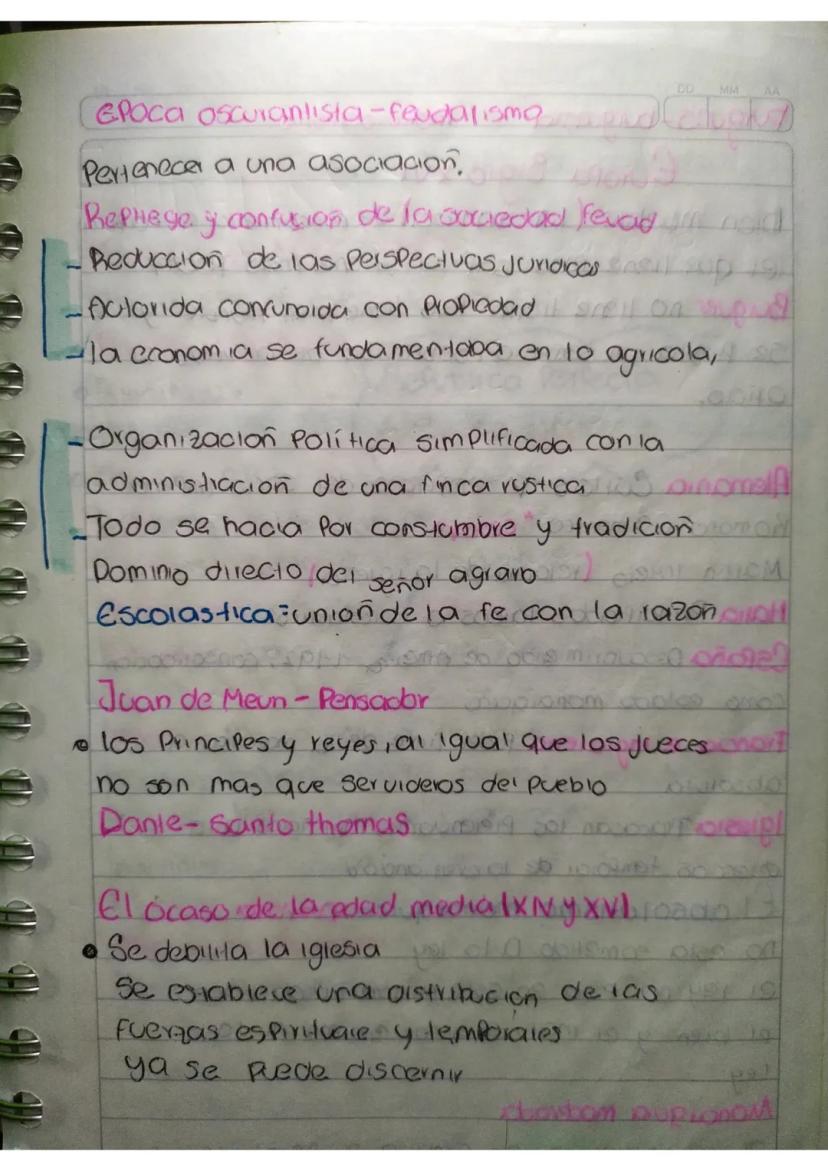 DD MM AA
Epoca oscurantista - feudalismo
Pertenecer a una asociación.
Repliege y confusión de la sociedad feuad
- Reducción de las perspectivas juridicas
- Autorida confundida con propiedad
- la economia se fundamentaba en lo agricola,
- Organización política simplificada con la
administración de una finca rustica
- Todo se hacia por constumbre y tradición
Dominio directo (del señor agrario)
Escolastica = unión de la fe con la razon
Juan de Meun - Pensador
• los Principes y reyes, al igual que los jueces
no son mas que servideros del pueblo
Dante - Santo thomas
El ocaso de la edad media (XIV y XV)
• Se debilita la iglesia
Se establece una distribucion de las
fuerzas espirituale y temporales
ya se puede discernir